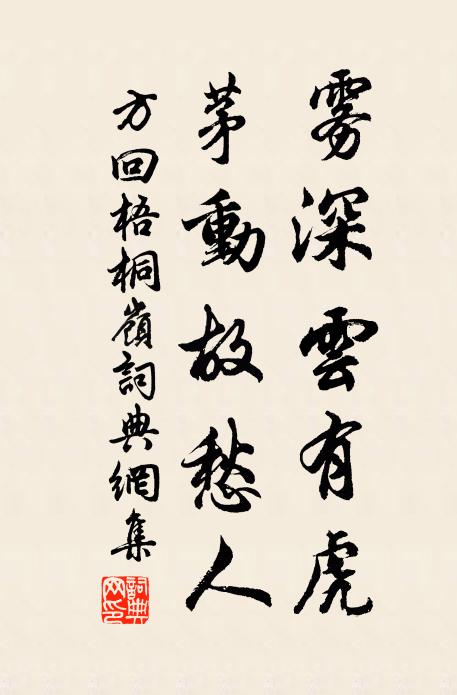 雾深雲有虎
茅動故愁人
方回梧桐嶺詞典網集
詞典网印